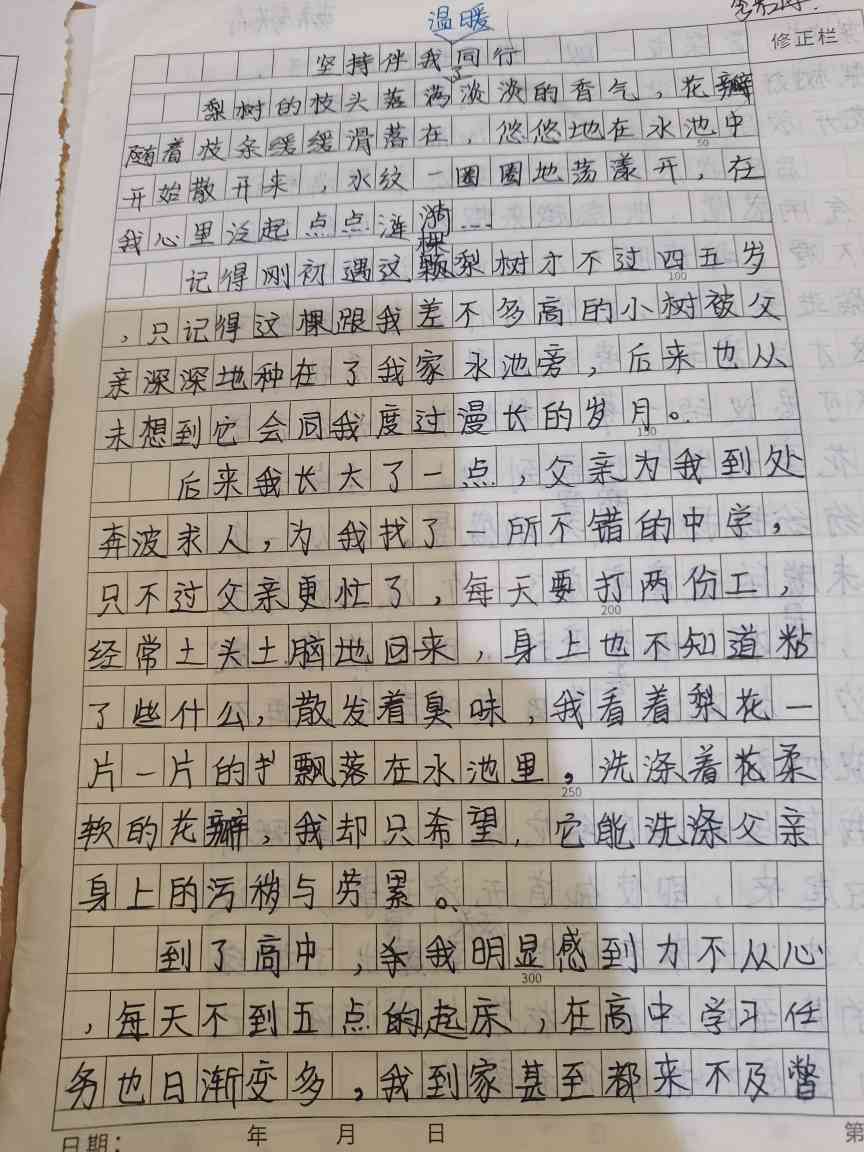 温暖
修正栏
坚持伴我同行
梨树的枝头落满了淡淡的香气，花瓣
随着枝条缓缓滑落在，悠悠地在水池中
50
开始散开来，水纹一圈圈地荡漾开，在
我心里泛起点点涟漪…
棵
记得刚初遇这颗梨树才不过四五岁
100
，只记得这棵跟我差不多高的小树被父
亲深深地种在了我家水池旁，后来也从
未想到它会同我度过漫长的岁月。
150
后来我长大了一点，父亲为我到处
奔波求人，为我找了 所不错的中学，
只不过父亲更忙了，每天要打两份工，
200
经常土头土脑地回来，身上也不知道粘
了些什么，散发着臭味，我看着梨花一
片一片的飘落在水池里。洗涤着花柔
250
软的花瓣，我却只希望，它能洗涤父亲
身上的污秽与劳累。
到了高中，我明显感到力不从心
300
，每天不到五点的起床，在高中学习任
务也日渐变多，我到家甚至都来不及瞥
日期： 年 月 日 第